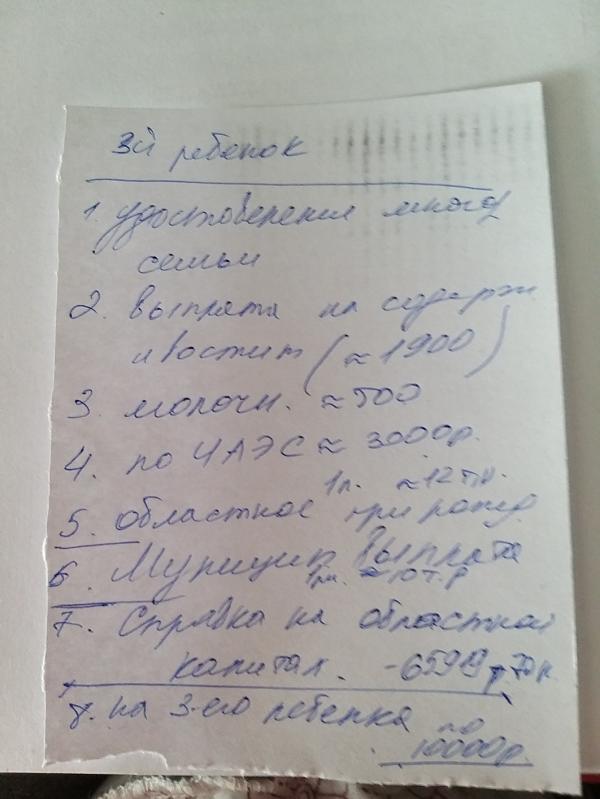 3й ребенок
1. удостоверение многод
семьи
2. выплата на содерж
и воспит (≈1900)
3. молочн. ≈500
4. по ЧАЭС ≈ 3000р.
1р. ≈12т.р.
5. областное при рожд
6. Муницип выплата
1р. 10т.р
7. Справка на областной
капитал. -65919р
8. на 3-его ребенка
по
10000р.